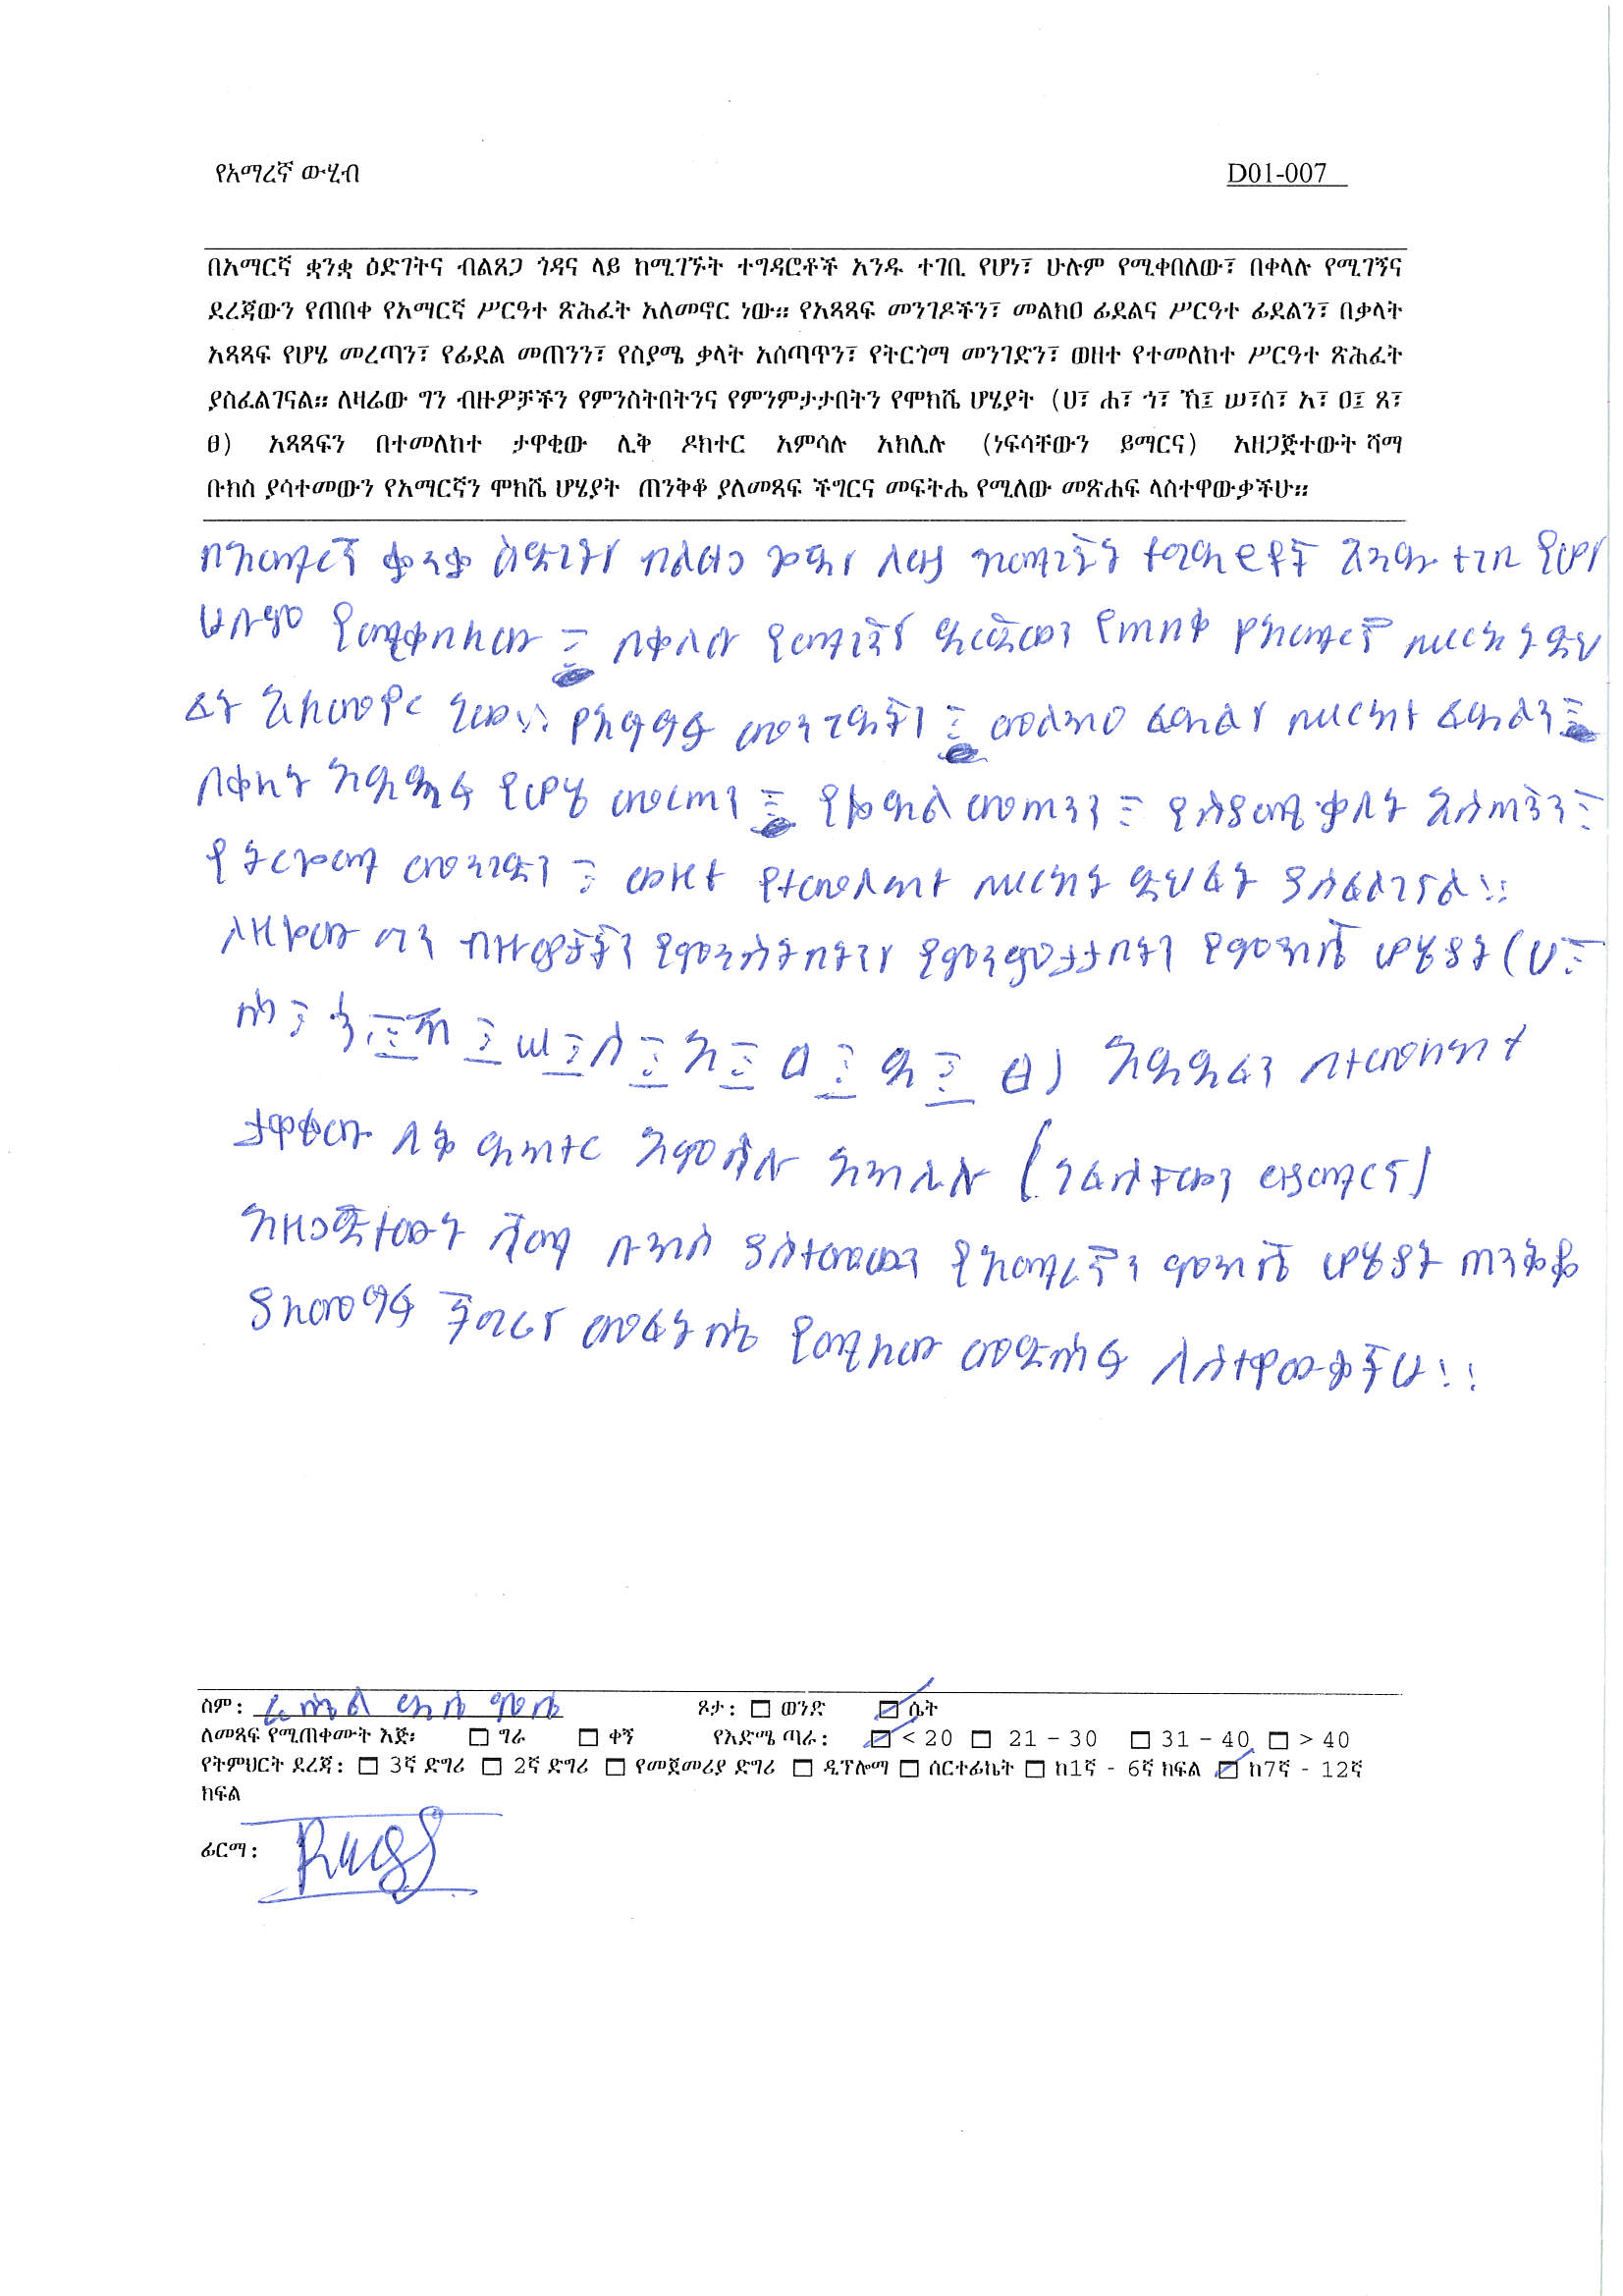 የአማረኛ ውሂብ D01-007
በአማርኛ ቋንቋ ዕድገትና ብልጸጋ ጎዳና ላይ ከሚገኙት ተግዳሮቶች አንዱ ተገቢ የሆነ፣ ሁሉም የሚቀበለው፣ በቀላሉ የሚገኝና
ደረጃውን የጠበቀ የአማርኛ ሥርዓተ ጽሕፈት አለመኖር ነው። የአጻጻፍ መንገዶችን፣ መልክዐ ፊደልና ሥርዓተ ፊደልን፣ በቃላት
አጻጻፍ የሆሄ መረጣን፣ የፊደል መጠንን፣ የስያሜ ቃላት አሰጣጥን፣ የትርጎማ መንገድን፣ ወዘተ የተመለከተ ሥርዓተ ጽሕፈት
ያስፈልገናል። ለዛሬው ግን ብዙዎቻችን የምንስትበትንና የምንምታታበትን የሞክሼ ሆሄያት (ሀ፣ ሐ፣ ኀ፣ ኸ፤ ሠ፣ሰ፣ አ፣ ዐ፤ ጸ፣
ፀ) አጻጻፍን በተመለከተ ታዋቂው ሊቅ ዶክተር አምሳሉ አክሊሉ (ነፍሳቸውን ይማርና) አዘጋጅተውት ሻማ
ቡክስ ያሳተመውን የአማርኛን ሞክሼ ሆሄያት ጠንቅቆ ያለመጻፍ ችግርና መፍትሔ የሚለው መጽሐፍ ላስተዋውቃችሁ።
በአማርኛ ቋንቋ ዕድገትና ብልፀጋ ጎዳና ላይ ከሚገኙት ተግዳሮቶች አንዱ ተገቢ የሆነ
ሁሉም የሚቀበለው ፣ በቀላሉ የሚገኝና ደረጃውን የጠበቀ የአማርኛ ሥርዓት ጽሕ
ፈት አለመኖር ነው። የአጻጻፍ መንገዶችን ፣ መልክዐ ፊደልና ሥርዓተ ፊደልን ፣
በቃላት አጻጻፍ የሆሄ መረጣን ፣ የፊደል መጠንን ፣ የስያሜ ቃላት አሰጣጥን ፣
የትርጎማ መንገድን ፣ ወዘተ የተመለከተ ሥርዓት ጽሕፈት ያስፈልገናል።
ለዛሬው ግን ብዙዎቻችን የምንስትበትንና የምንምታታበትን የሞክሼ ሆሄያት (ሀ ፣
ሐ ፣ ኀ ፣ ኸ ፣ ሠ ፣ ሰ ፣ አ ፣ ዐ ፣ ጸ ፣ ፀ) አጻጻፍን በተመለከተ
ታዋቂው ሊቅ ዶክተር አምሳሉ አክሊሉ (ነፍሳቸውን ይማርና)
አዘጋጅተውት ሻማ ቡክስ ያሳተመውን የአማርኛን ሞክሼ ሆሄያት ጠንቅቆ
ያለመጻፍ ችግርና መፍትሔ የሚለው መጽሐፍ ላስተዋውቃችሁ።
ስም: ጾታ: ወንድ ሴት
ለመጻፍ የሚጠቀሙት እጅ፡ ግራ ቀኝ የእድሜ ጣራ: < 20 21 – 30 31 – 40 > 40
የትምህርት ደረጃ: 3ኛ ድግሪ 2ኛ ድግሪ የመጀመሪያ ድግሪ ዲፕሎማ ሰርተፊኬት ከ1ኛ - 6ኛ ክፍል ከ7ኛ - 12ኛ
ክፍል
ፊርማ: